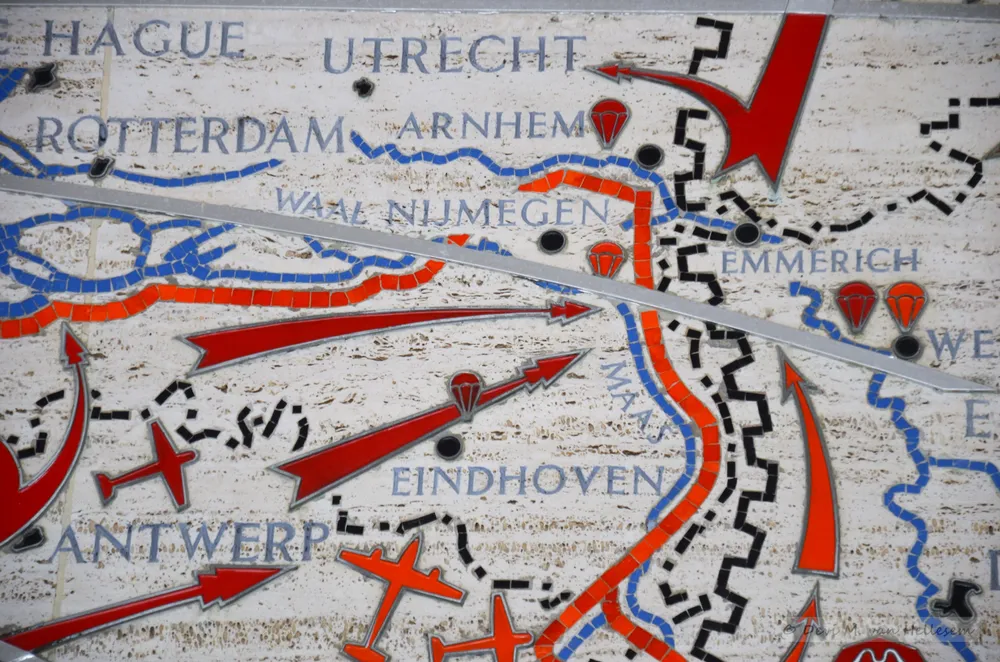 E HAGUE
UTRECHT
ROTTERDAM
ARNHEM
WAAL NIJMEGEN
EMMERICH
WE
MAAS
E
EINDHOVEN
ANTWERP
© Deyo M. van Hellesem